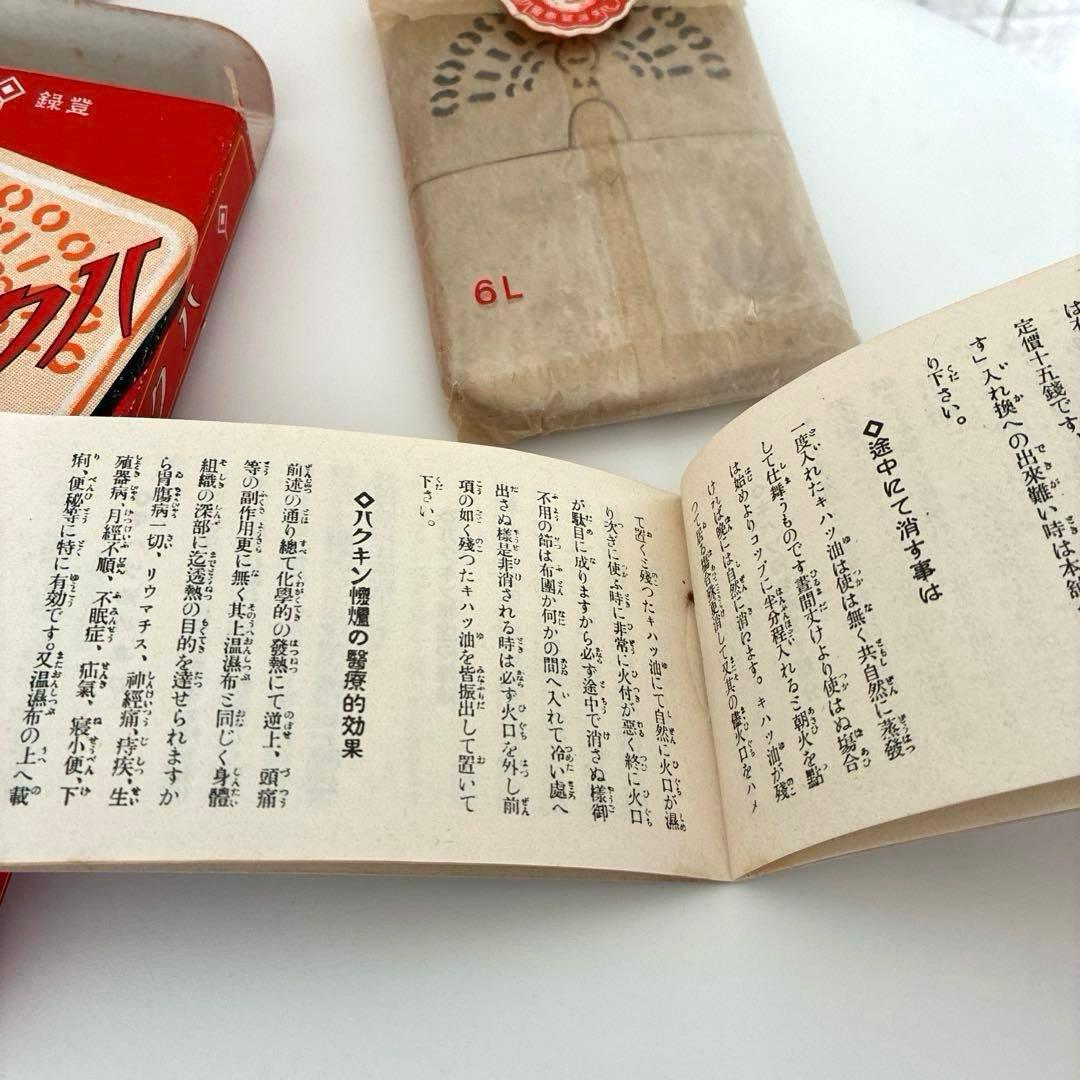 登錄
ハク
6L
定價十五錢です、
す」入れ換への出來難い時は本舖
り下さい。
◇途中にて消す事は
一度入れたキハツ油は使は無く共自然に蒸發
して仕舞うものです晝間丈けより使はぬ塲合
は始めよりコツプに半分程入れるミ朝火を點
ければ晩には自然に消江ます。キハツ油が殘
つて又其の儘火口をハメ
て置くミ殘つたキハツ油にて自然に火口が濕
り次ぎに使ふ時に非常に火付が惡く終に火口
が駄目に成りますから必ず途中で消さぬ樣御
不用の節は布團か何かの間へ入れて冷い處へ
出さぬ樣是非消される時は必ず火口を外し前
項の如く殘つたキハツ油を皆振出して置いて
下さい。
◇ハクキン懷爐の醫療的効果
前述の通り總て化學的の發熱にて逆上、頭痛
等の副作用更に無く其上温濕布ミ同じく身體
組織の深部に迄透熱の目的を達せられますか
ら胃膓病一切、リウマチス、神經痛、痔疾、生
殖器病、月經不順、不眠症、疝氣、寢小便、下
痢、便秘等に特に有効です。又温濕布の上へ載